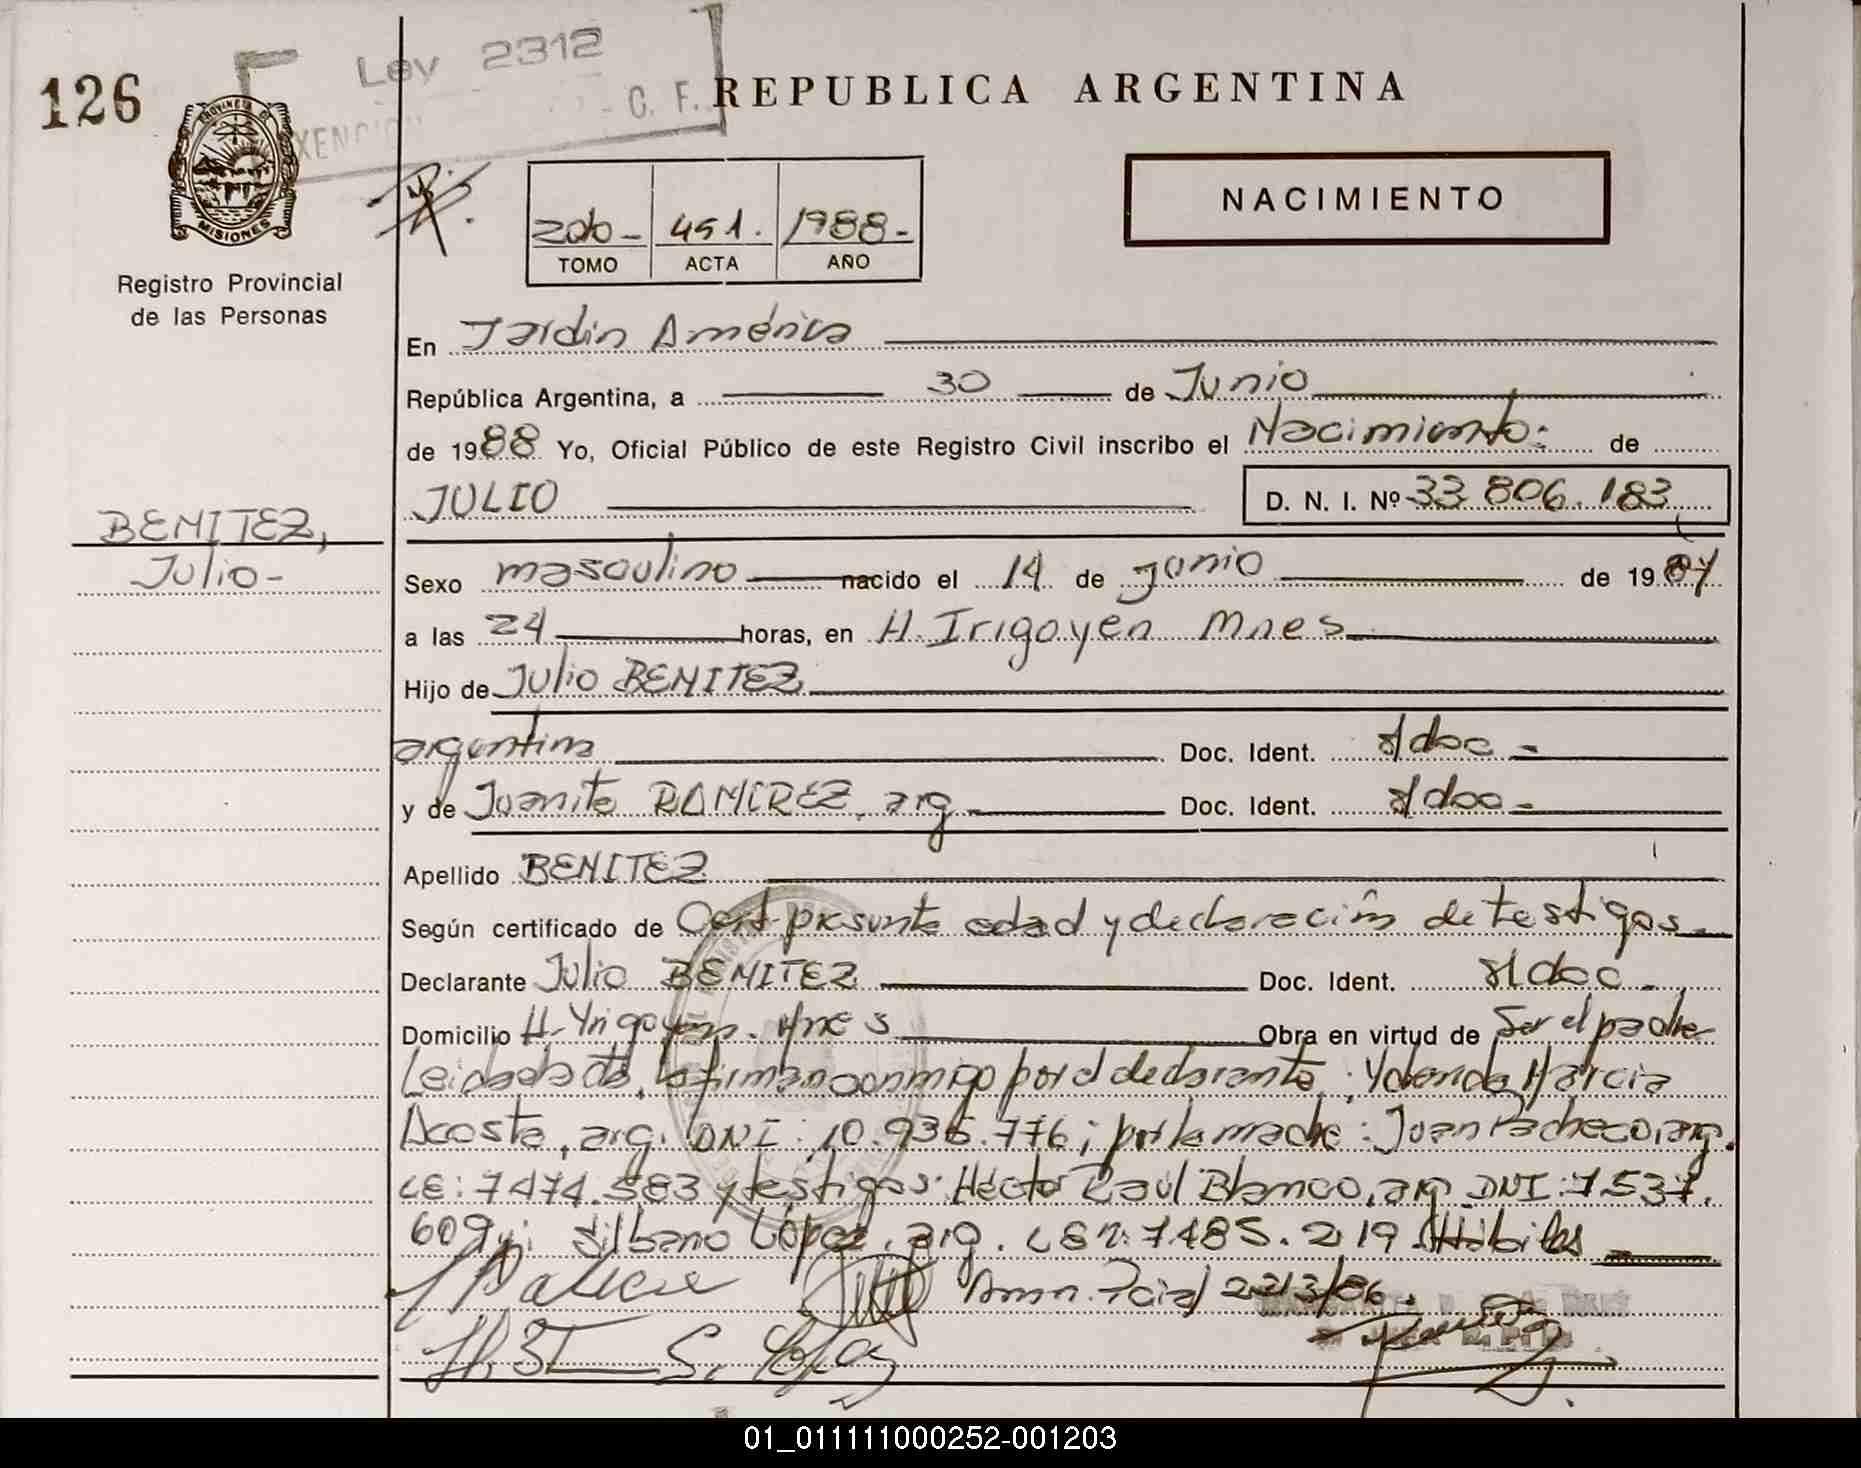 126
Ley 2312
C. F.
REPUBLICA ARGENTINA
PROVINCIA DE
MISIONES
Registro Provincial
de las Personas
2do - 451. 1988-
TOMO ACTA AÑO
NACIMIENTO
En Jardin América
República Argentina, a 30 de Junio
de 1988 Yo, Oficial Público de este Registro Civil inscribo el Nacimiento: de
JULIO D. N. I. Nº 33.806.183
BENITEZ,
Julio-
Sexo masculino nacido el 14 de junio de 1984
a las 24 horas, en H. Irigoyen Mnes
Hijo de Julio BENITEZ
argentina Doc. Ident. s/doc -
y de Juanita RAMIREZ, arg. Doc. Ident. s/doc -
Apellido BENITEZ
Según certificado de Cert presunta edad y declaración de testigos.
Declarante Julio BENITEZ Doc. Ident. s/doc -
Domicilio H. Yrigoyen. Mnes Obra en virtud de Ser el padre
Leida el acta, la firman conmigo por el declarante: Marcia
Acosta, arg. DNI: 10.936.776; por la madre: Juan Pacheco, arg.
LE: 7474.583 y testigos: Héctor Raúl Blanco, arg DNI: 7.537.
609 y: Silbano López, arg. LE n: 7.485.219. Hábiles
22/3/86.
S. López
01_011111000252-001203